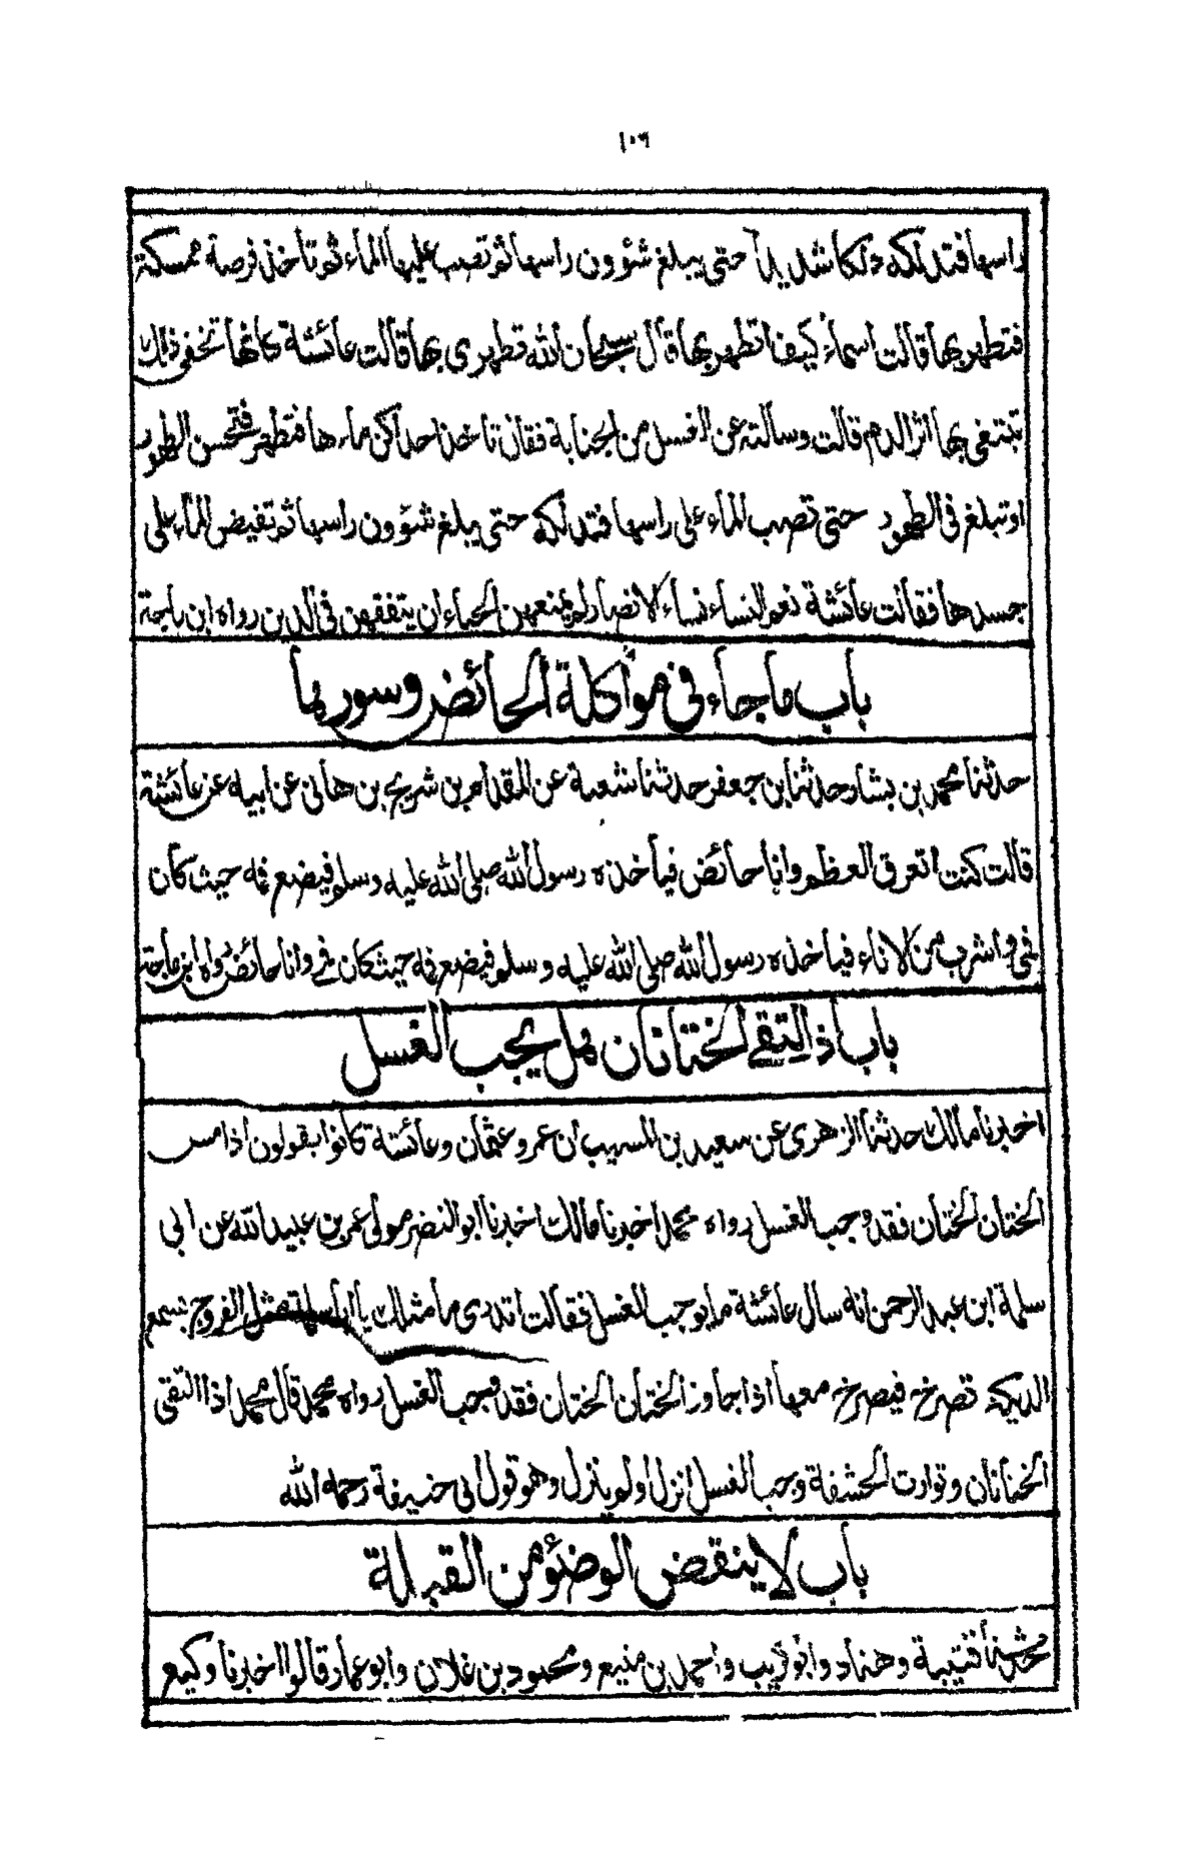 ١٠٦
راسها فتدلكه دلكا شديدا حتى يبلغ شؤون راسها ثم تصب عليها الماء ثم تاخذ فرصة ممسكة
فتطهر بها قالت اسماء كيف اتطهر بها قال سبحان الله تطهرى بها قالت عائشة كانها تخفى ذلك
تبتغى بها اثر الدم قالت وسالته عن الغسل من الجنابة فقال تاخذ احداكن ماءها فتطهر فتحسن الطهور
او تبلغ فى الطهور حتى تصب الماء على راسها فتدلكه حتى يبلغ شؤون راسها ثم تفيض الماء على
جسدها فقالت عائشة نعم النساء نساء الانصار لم يمنعهن الحياء ان يتفقهن فى الدين رواه ابن ماجة
باب ما جاء فى مواكلة الحائض وسورها
حدثنا محمد بن بشار حدثنا بن جعفر حدثنا شعبة عن المقدام بن شريح بن هانى عن ابيه عن عائشة
قالت كنت اتعرق العظم وانا حائض فياخذه رسول الله صلى الله عليه وسلم فيضع فمه حيث كان
فمى واشرب من الاناء فياخذه رسول الله صلى الله عليه وسلم فيضع فمه حيث كان فمى وانا حائض رواه ابن ماجة
باب اذ التقے الختانان هل يجب الغسل
اخبرنا مالك حدثنا الزهرى عن سعيد بن المسيب ان عمر وعثمان وعائشة كانوا يقولون اذا مس
الختان الختان فقد وجب الغسل رواه محمد اخبرنا مالك اخبرنا ابو النضر مولى عمر بن عبيد الله عن ابى
سلمة ابن عبد الرحمن انه سال عائشة ما يوجب الغسل فقالت اتدرى ما مثلك يا ابا سلمة مثل الفروج يسمع
الديكة تصرخ فيصرخ معها اذا جاوز الختان الختان فقد وجب الغسل رواه محمد قال محمد اذا التقى
الختانان وتوارت الحشفة وجب الغسل انزل او لم ينزل وهو قول ابى حنيفة رحمه الله
باب لا ينقض الوضوء من القبلة
حدثنا قتيبة وهناد وابو كريب واحمد بن منيع ومحمود بن غلان وابو عمار قالوا اخبرنا وكيع